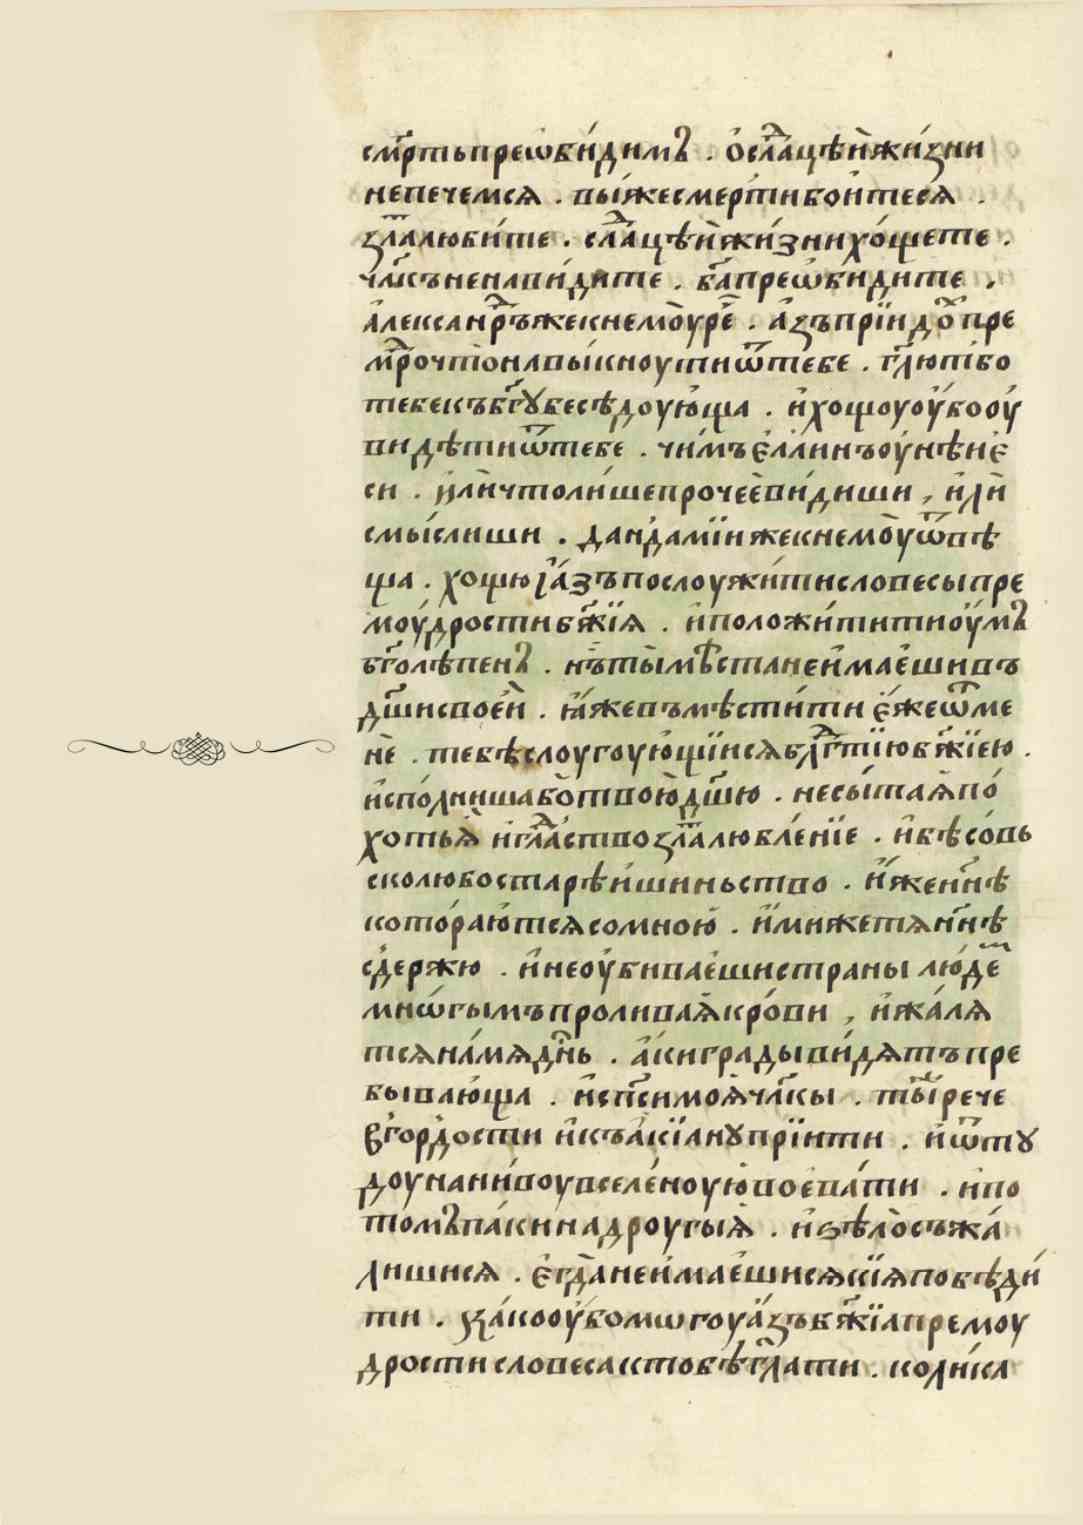 смр҃тьпреѡби́димъ . ѡ҆сла́цѣй҆жи́зни
непечемся . вы́жесмерти бои́теся .
зла҃талюби́те . сла́цѣй҆жи́знихо́щете .
чл҃къненави́дите . бг҃апреѡби́дите .
а҆лексан҆дръ҃жекнемꙋ̀рече҃ . а҆зъпрїидо́хпре
мꙋ҃дрочто̀навы́кноутиѿтебе . гл҃ютібо
тебекъбг҃ꙋбесѣдоую́ща . и҆хощоуоу҆бооу҆
видѣтиѿтебе . чи́мъе҆ллинъоу́нѣйе҆
си . и҆лѝчтоли́шепрочеѐви́диши , и҆лѝ
смы́слиши . дан҆дамїйжекнемоу̀ѿвѣ
ща . хощюі҆а҆́зъпослоужи́тисловесыпре
моу́дростибж҃їя . и҆положи́титиоу҆́мъ
бг҃олѣпенъ . нъ̀ты̀мѣ́станеи҆мае́шивъ
дш҃исвое́й . ꙗ҆́жевъмѣсти́тие҆́жеѿме
нѐ . тебѣ̀слоугоую́щїисяблг҃тїюбж҃їею .
и҆спо́лнишабо̀твою̀дш҃ю . несы́тая҆по́
хотья҆̀ и҆гла́ствозла҃талюбле́нїе . и҆бѣсо́вь
сколюбостарѣи́шиньство . и҆́женн҃ѣ
кото́раю́тсясомною́ . и҆́мижетянн҃ѣ
сдержю . и҆неоу҆бивае́шистраны лю́де҃м
мнѡ́гымъпроливая҆кро́ви , и҆жа́ля
тсяна́мядн҃ь . а҆́киградыви́дятъпре
быва́юща . и҆спс҃имоя҆чл҃кы . ты҃́ірече
в҆го́рдости и҆къа҆кїа́нꙋпрїити . и҆ѿтꙋ
доунани́воувселе́ноую̀воева́ти . и҆по
томъпа́кинадроугыя҆̀ . и҆ѕѣло̀съжа́
лишися . е҆гда̀неи҆мае́шисякїяповѣди́
ти . ка́кооу҆бомѡгоуа҆́зъбж҃їяпремоу
дростисловесактобѣ̀гл҃ати . коли́ка